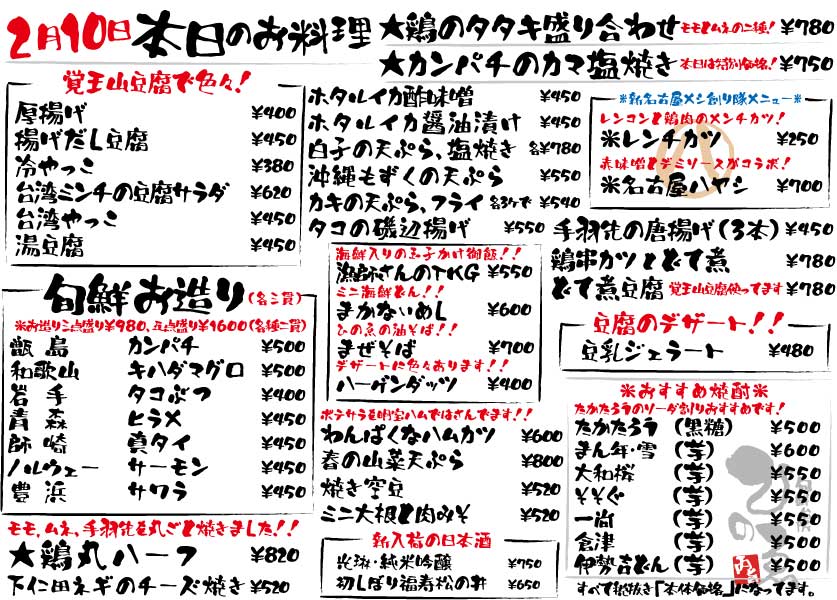 2月10日 本日のお料理
★鶏のタタキ盛り合わせ モモとムネの二種! ¥780
★カンパチのカマ塩焼き 本日は特別価格! ¥750
覚王山豆腐で色々!
厚揚げ ¥400
揚げだし豆腐 ¥450
冷やっこ ¥380
台湾ミンチの豆腐サラダ ¥620
台湾やっこ ¥450
湯豆腐 ¥450
旬鮮お造り(各三貫)
※お造り三点盛り¥980、五点盛り¥1600(各種二貫)
甑島 カンパチ ¥500
和歌山 キハダマグロ ¥500
岩手 タコぶつ ¥400
青森 ヒラメ ¥450
師崎 真タイ ¥450
ノルウェー サーモン ¥450
豊浜 サワラ ¥450
モモ、ムネ、手羽先を丸ごと焼きました!!
★鶏丸ハーフ ¥820
下仁田ネギのチーズ焼き ¥520
ホタルイカ酢味噌 ¥450
ホタルイカ醤油漬け ¥450
白子の天ぷら、塩焼き 各¥780
沖縄もずくの天ぷら ¥550
カキの天ぷら、フライ 各3ケで ¥540
タコの磯辺揚げ ¥550
海鮮入りの玉子かけ御飯!!
漁師さんのTKG ¥550
ミニ海鮮どん!!
まかないめし ¥600
ひの魚の油そば!!
まぜそば ¥700
デザートに色々おります!!
ハーゲンダッツ ¥400
ポテサラを明宝ハムではさんでます!!
わんぱくなハムカツ ¥600
春の山菜天ぷら ¥800
焼き空豆 ¥520
ミニ大根と肉みそ ¥520
新入荷の日本酒
純米吟醸 ¥750
初しぼり福寿松の井 ¥650
※新名古屋メシ創り隊メニュー※
レンコンと鶏肉のメンチカツ!
※レンチカツ ¥250
赤味噌とデミソースがコラボ!
※名古屋ハヤシ ¥700
手羽先の唐揚げ(3本) ¥450
鶏串カツとどて煮 ¥780
どて煮豆腐 覚王山豆腐使ってます ¥780
豆腐のデザート!!
豆乳ジェラート ¥480
※おすすめ焼酎※
たかたろうのソーダ割りおすすめです!
たかたろう (黒糖) ¥500
まん年・雪 (芋) ¥600
大和桜 (芋) ¥550
そそぐ (芋) ¥550
一尚 (芋) ¥550
倉津 (芋) ¥500
伊勢吉どん (芋) ¥550
すべて税抜き「本体価格」になってます。